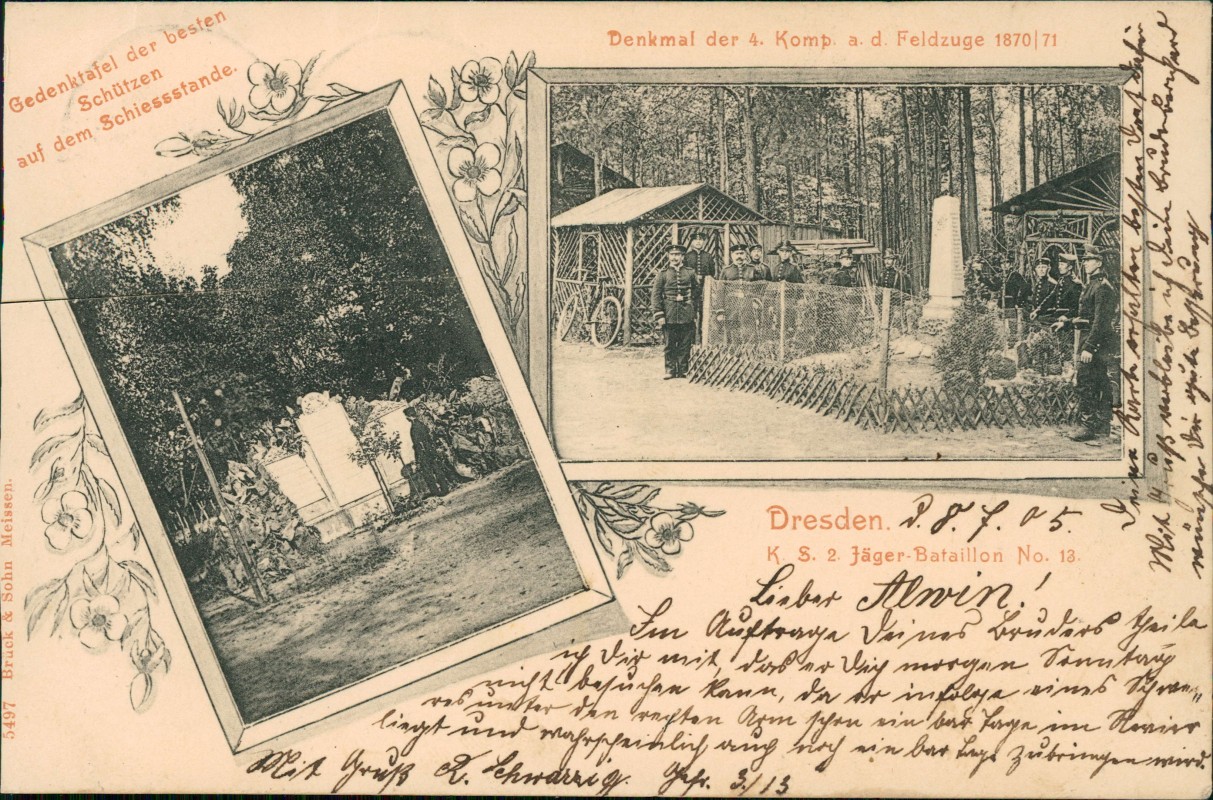 Gedenktafel der besten
Schützen
auf dem Schiessstande.
Denkmal der 4. Komp. a. d. Feldzuge 1870|71
Dresden. d. 8. 7. 05.
K. S. 2. Jäger-Bataillon No. 13.
Lieber Alwin!
Im Auftrage Deines Bruders theile
ich Dir mit, das er Dich morgen Sonntag
nicht besuchen kann, da er infolge eines Schwe-
res unter den rechten Arm schon ein bar Tage im Revier
liegt und wahrscheinlich auch noch ein bar Tage zubringen wird.
Mit Gruß R. Schwarzig. Gefr. 3./13
Deine Karte erhalten besten Dank dafür
Mit Gruß verbleibe ich Dein Bruder
wünsche Dir gute Besserung
5497 Brück & Sohn Meissen.